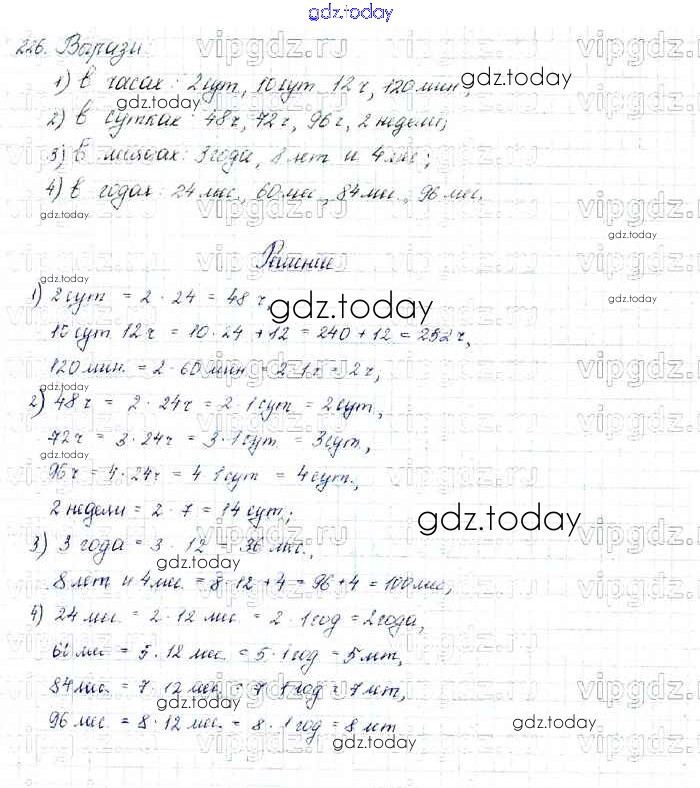 gdz.today
226. Вырази:
1) в часах: 2 сут, 10 сут 12 ч, 120 мин;
2) в сутках: 48 ч, 72 ч, 96 ч, 2 недели;
3) в месяцах: 3 года, 8 лет и 4 мес;
4) в годах: 24 мес., 60 мес., 84 мес., 96 мес.
Решение
1) 2 сут = 2 · 24 = 48 ч,
10 сут 12 ч = 10 · 24 + 12 = 240 + 12 = 252 ч,
120 мин. = 2 · 60 мин = 2 · 1 ч = 2 ч,
2) 48 ч = 2 · 24 ч = 2 · 1 сут = 2 сут.,
72 ч = 3 · 24 ч = 3 · 1 сут = 3 сут.,
96 ч = 4 · 24 ч = 4 · 1 сут = 4 сут.,
2 недели = 2 · 7 = 14 сут;
3) 3 года = 3 · 12 = 36 мес.,
8 лет и 4 мес = 8 · 12 + 4 = 96 + 4 = 100 мес,
4) 24 мес = 2 · 12 мес = 2 · 1 год = 2 года,
60 мес = 5 · 12 мес = 5 · 1 год = 5 лет,
84 мес. = 7 · 12 мес = 7 · 1 год = 7 лет,
96 мес = 8 · 12 мес = 8 · 1 год = 8 лет